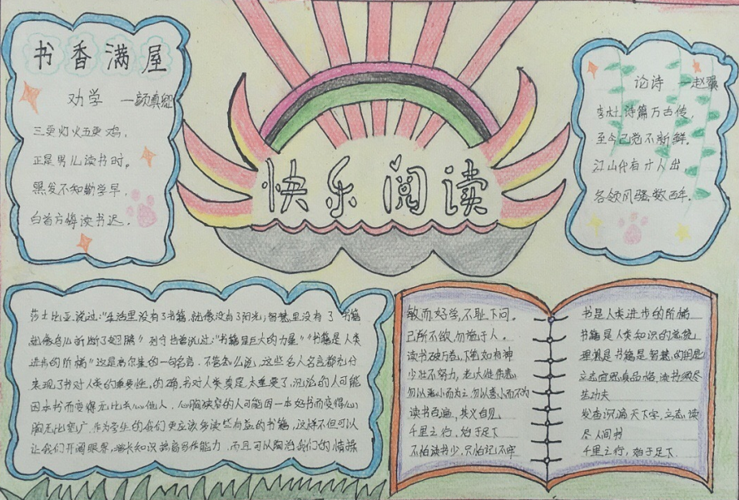 书香满屋
劝学 —颜真卿
三更灯火五更鸡,
正是男儿读书时。
黑发不知勤学早,
白首方悔读书迟.
快乐阅读
论诗 —赵翼
李杜诗篇万古传,
至今已觉不新鲜。
江山代有才人出
各领风骚数百年.
莎士比亚说过:"生活里没有了书籍,就像没有了阳光;智慧里没有了书籍
就像鸟儿折断了翅膀"列宁也著说过:"书籍是巨大的力量""书籍是人类
进步的阶梯"这是高尔基的一句名言,不管怎么说,这些名人名言都充分
体现了书对人类的重要性。的确,书对人类真是太重要了,
因本书而变得无比 心胸狭窄的人可能因一本好书而变得心
胸无比宽广,作为学生的我们更应该多读些有益的书籍,这样不但可以
让我们开阔眼界,增长知识提高思维能力,而且可以陶冶我们的情操
敏而好学,不耻下问。
己所不欲,勿施于人。
读书破万卷,下笔如有神
少壮不努力,老大徒伤悲
勿以恶小而为之,勿以善小而不为
读书百遍,其义自见
千里之行,始于足下
不怕读书少,只怕记不牢
书是人类进步的阶梯
书籍是人类知识的总统
理莫是书籍是智慧的钥匙
立志宜思真品格,读书须尽
苦功夫
发奋识遍天下字,立志读
尽人间书
千里之行,始于足下